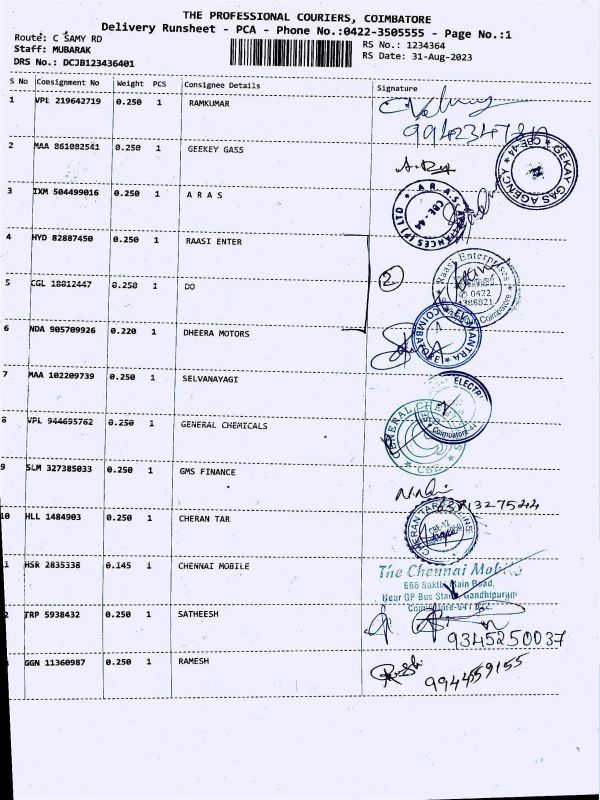 THE PROFESSIONAL COURIERS, COIMBATORE
Delivery Runsheet - PCA - Phone No.:0422-3505555 - Page No.:1
Route: C SAMY RD RS No.: 1234364
Staff: MUBARAK RS Date: 31-Aug-2023
DRS No.: DCJB123436401
S No Consignment No Weight PCS Consignee Details Signature
1 VPL 219642719 0.250 1 RAMKUMAR
2 MAA 861082541 0.250 1 GEEKEY GASS
GEKAY GAS AGENCY CBE-44
3 IXM 504499016 0.250 1 A R A S
A.R.A.S. (P) LTD CBE-44
4 HYD 82887450 0.250 1 RAASI ENTER
2
Raasi Enterprises
0422
Coimbatore
5 CGL 18012447 0.250 1 DO
6 NDA 905709926 0.220 1 DHEERA MOTORS
COIMBATORE
7 MAA 102209739 0.250 1 SELVANAYAGI
ELECTRI
Coimbatore-44
8 VPL 944695762 0.250 1 GENERAL CHEMICALS
GENERAL CHE
CBE
9 SLM 327385033 0.250 1 GMS FINANCE
10 HLL 1484903 0.250 1 CHERAN TAR
CHERAN TAR
CBE-12
HSR 2835338 0.145 1 CHENNAI MOBILE
The Chennai Mobile
666 Sakthi Main Road,
Near GP Bus Stand, Gandhipuram
2 TRP 5938432 0.250 1 SATHEESH
9345250037
GGN 11360987 0.250 1 RAMESH
994459155